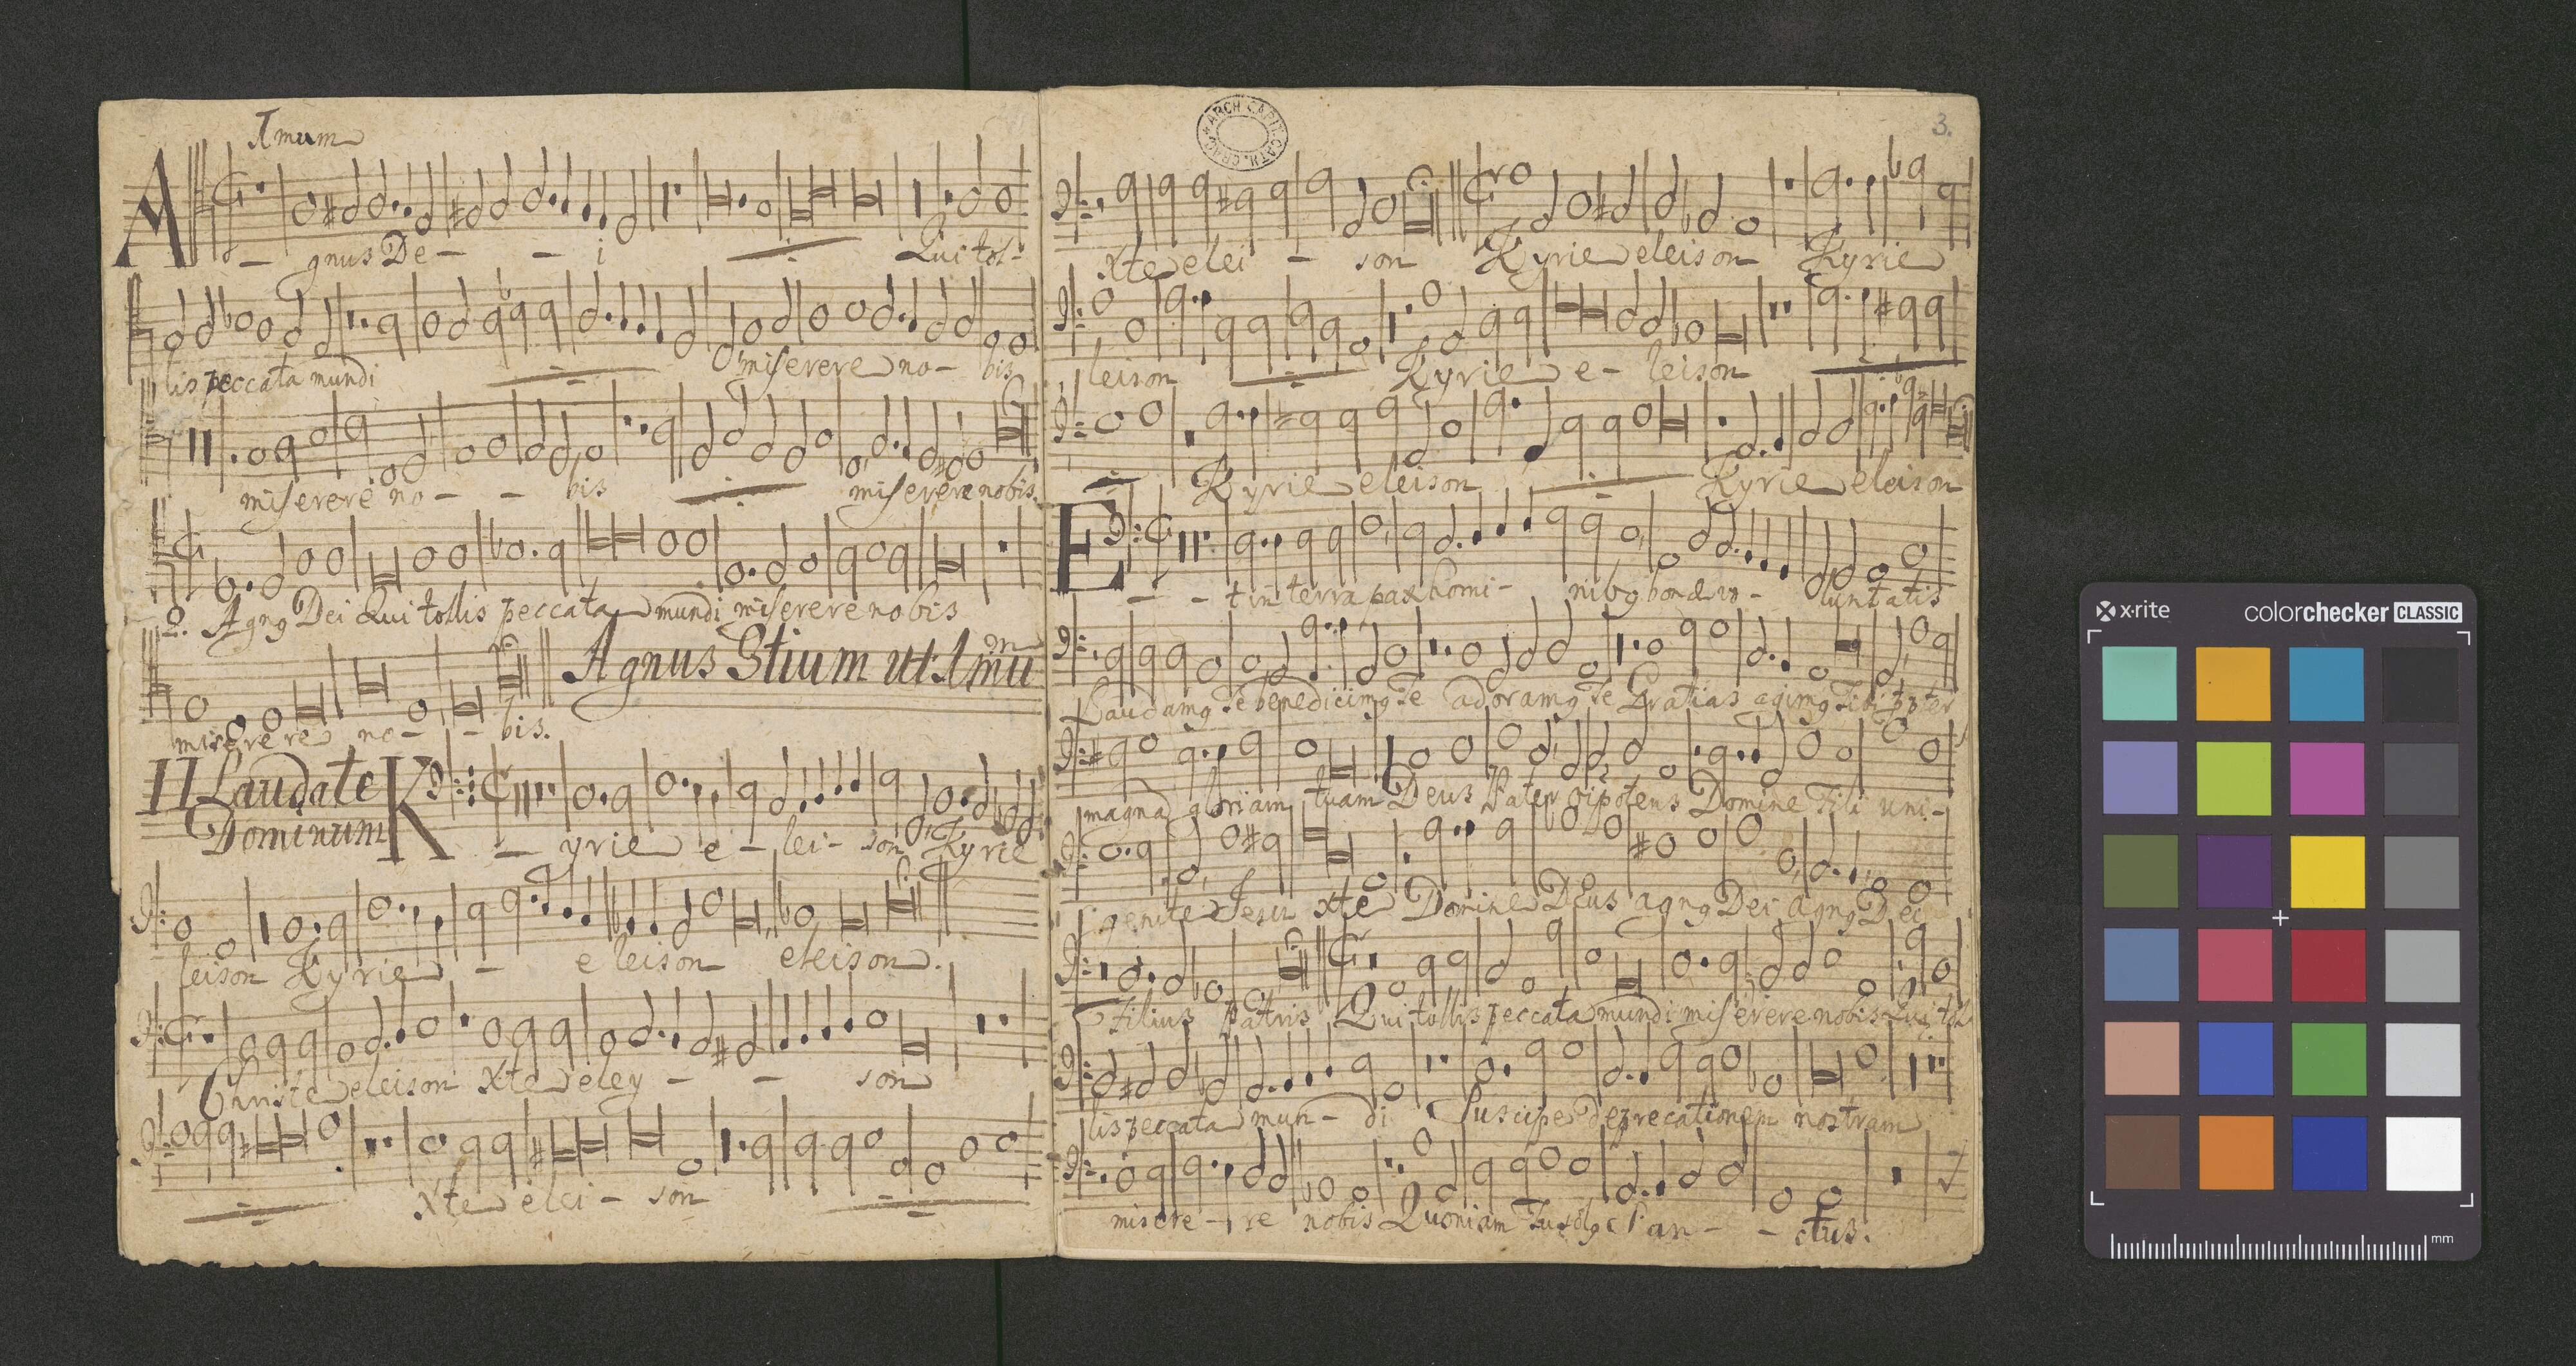 Imum
A - gnus De - - i Qui tol-
lis peccata mundi miserere no- bis
miserere no - - bis miserere nobis.
2. Agng Dei Qui tollis peccata mundi miserere nobis
Agnus 3tium ut Imum
miserere no - - bis.
II Laudate Dominum
K - yrie e - lei - son Kyrie
leison Kyrie - e leison eleison.
Christe eleison Xte eley - - son
Xte elei - son
ARCH. CAPIT. CATH. CRAC.
3.
Xte elei - son Kyrie eleison Kyrie
leison Kyrie e - leison
Kyrie eleison Kyrie eleison
E - - t in terra pax homi - nibg bonæ vo - luntatis
Laudamg Te benedicimg Te adoramg Te Gratias agimg Tibi ppter
magnã gloriam tuam Deus Pater oipotens Domine Fili uni-
genite Jesu xte Domine Deus agng Dei agng Dei
Filius Patris Qui tollis peccata mundi miserere nobis Qui tol
lis peccata mun - di Suscipe deprecationem nostram
misere - re nobis Quoniam Tu solg San - - ctus.
x·rite
colorchecker CLASSIC
mm